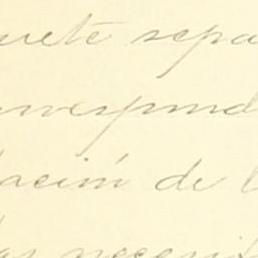 urete separa
orrespond
lación de l
las necesit